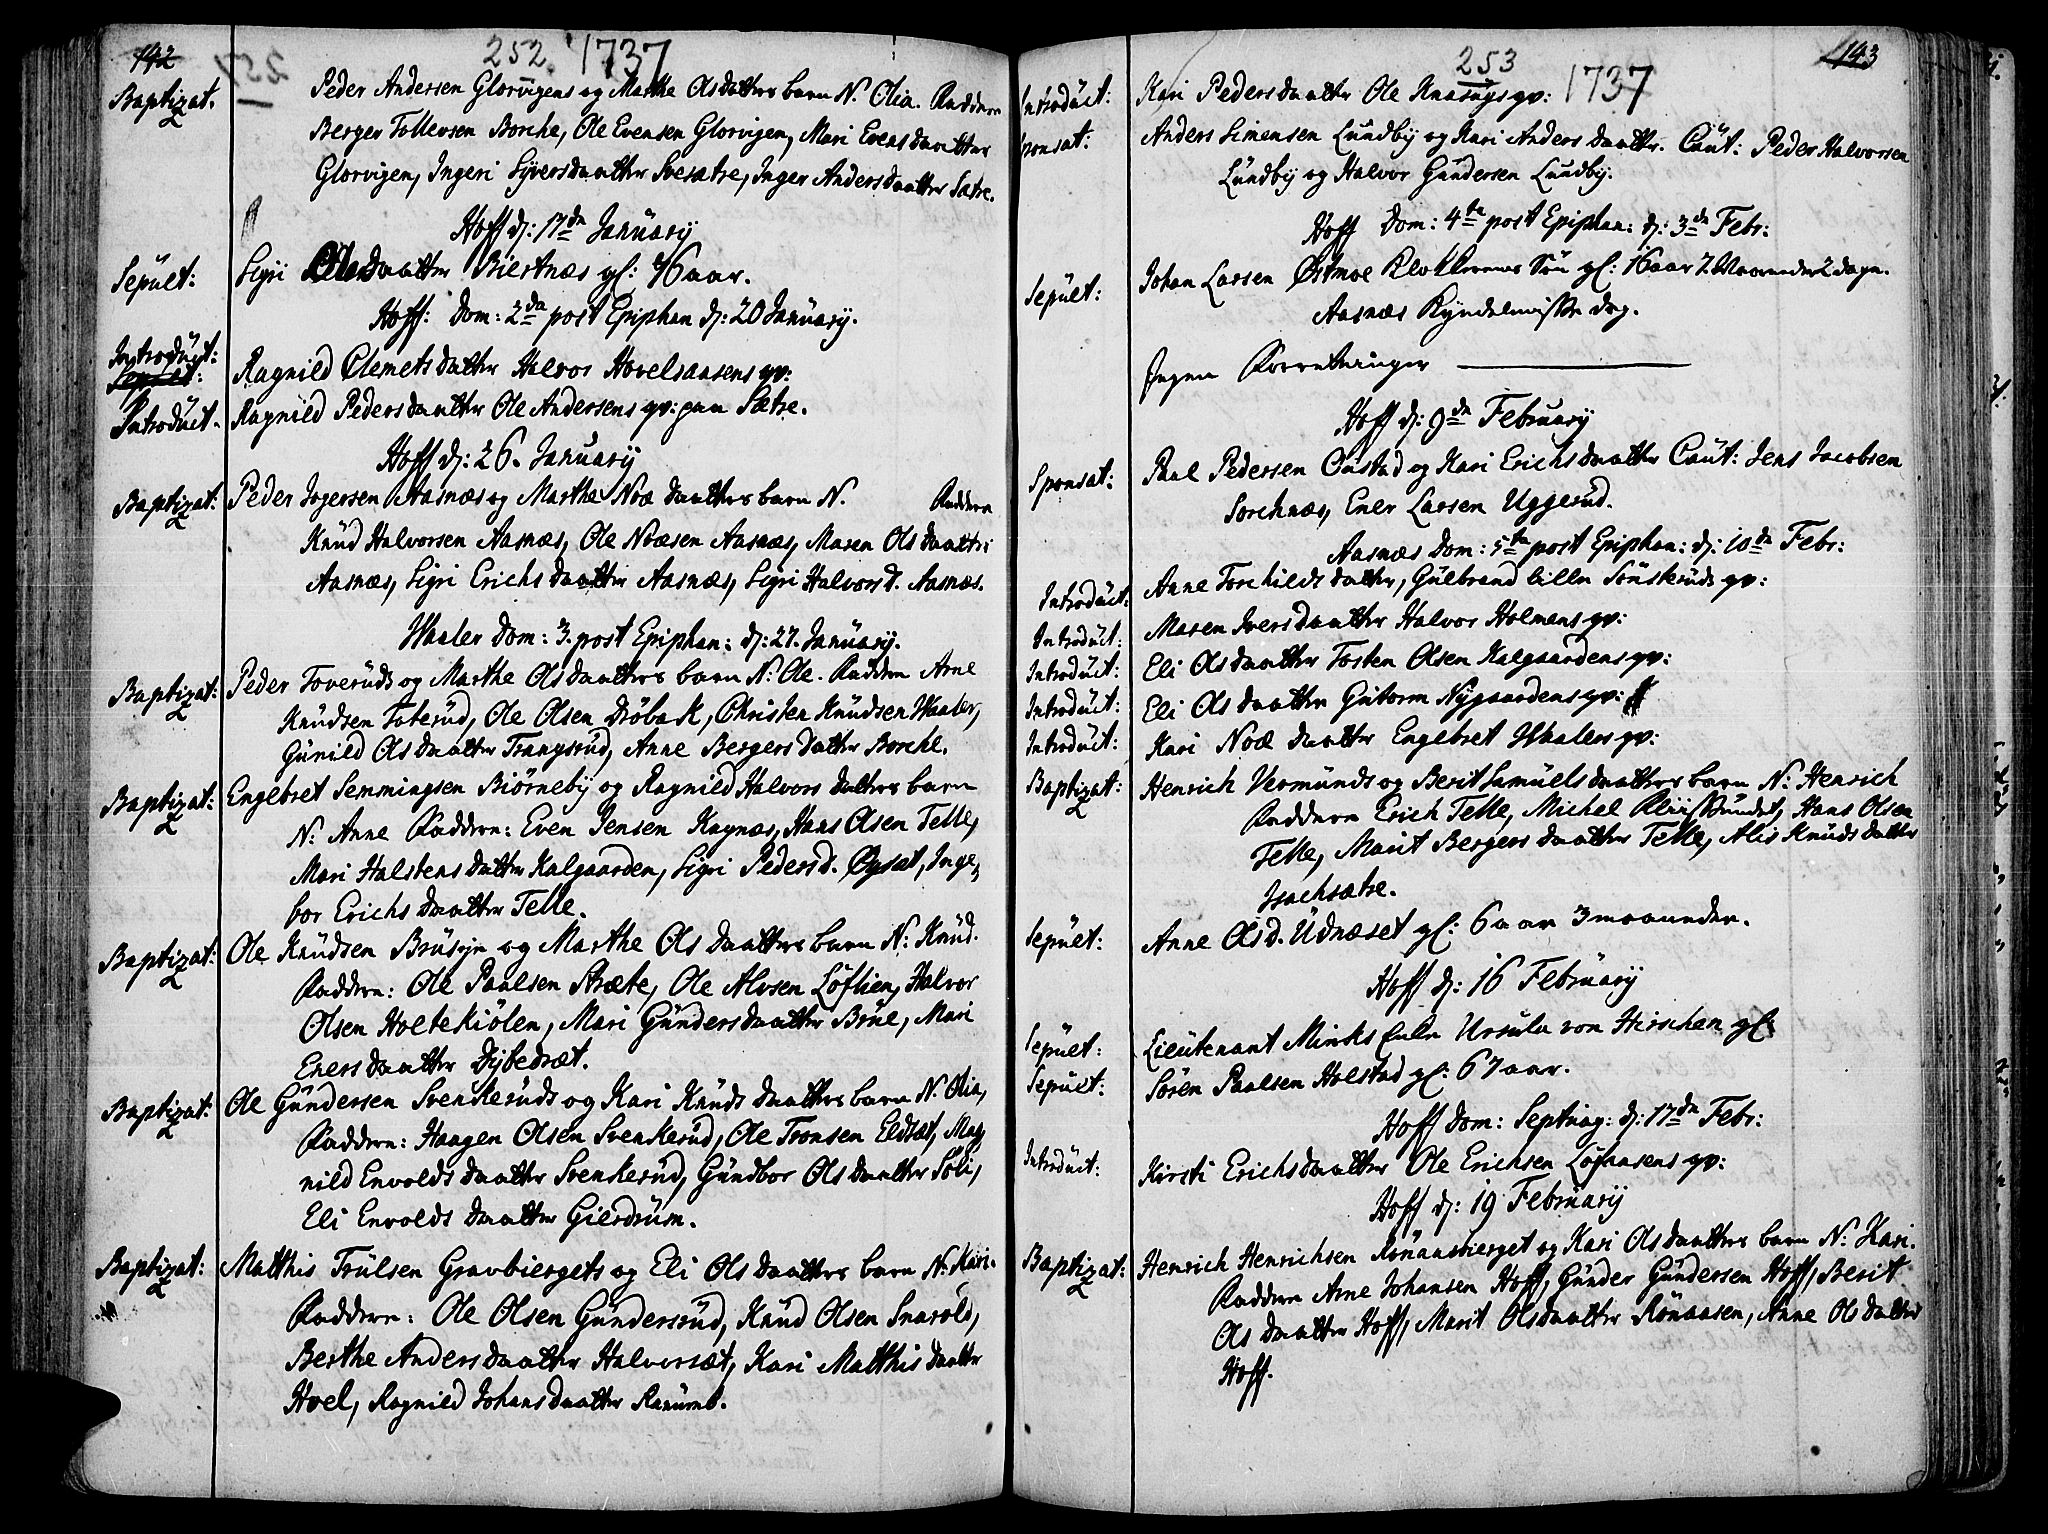 142
252. 1737
Baptizat. Peder Andersen Glorvigens og Marthe Olsdatters barn N. Olia. Faddere
Berger Tollevsen Borche, Ole Evensen Glorvigen, Mari Evensdaatter
Glorvigen, Ingeri Syversdaatter Svesætre, Inger Andersdaatter Sætre.
Hoff d: 17de Januarij
Sepult: Sigri daatter Biertnæs gl: 76 aar.
Hoff: Dom: 2da post Epiphan d: 20 Januarij.
Introduct: Ragnild Clemetsdatter Halvor Hovelsaasens qv:
Sepult:
Introduct. Ragnild Pedersdaatter Ole Andersens qv: paa Sætre.
Hoff d: 26. Januarij
Baptizat: Peder Jogersen Aasnæs og Marthe Noæ daatters barn N. Faddere
Knud Halvorsen Aasnæs, Ole Noæsen Aasnæs, Maren Olsdaatter
Aasnæs, Sigri Erichsdaatter Aasnæs, Sigri Halvorsd. Aasnæs.
Waaler Dom: 3. post Epiphan: d: 27. Januarij.
Baptizat: Peder Toveruds og Marthe Olsdaatters barn N: Ole. Faddere Arne
Knudsen Toterud, Ole Olsen Drøbak, Christen Knudsen Waaler,
Gunild Olsdaatter Trangsrud, Anne Bergersdatter Borche.
Baptizat: Engebret Semmingsen Biørneby og Ragnild Halvorsdatters barn
N: Anne Faddere: Even Jensen Kragnæs, Hans Olsen Telle,
Mari Halstensdatter Kalgaarden, Sigri Pedersd. Øysat, Inge,
bor Erichsdaatter Telle.
Baptizat: Ole Knudsen Brusyn og Marthe Olsdaatters barn N: Knud.
Faddere: Ole Paulsen Stræte, Ole Alvsen Løflien, Halvor
Olsen Holtekiølen, Mari Gundersdaatter Brue, Mari
Enersdaatter Dybedræt.
Baptizat: Ole Gundersen Svenkeruds og Kari Knudsdaatters barn N. Olia,
Faddere: Haagen Olsen Svenkerud, Ole Tronsen Eldset, Mag
nild Envoldsdaatter Svenkerud, Gundbor Olsdaatter Soli,
Eli Envoldsdaatter Gierdrum.
Baptizat: Matthis Trulsen Gravbiergets og Eli Olsdaatters barn N. Kari.
Faddere: Ole Olsen Gundersrud, Knud Olsen Snarold,
Berthe Andersdaatter Halvorsæt, Kari Matthisdaatter
Hoel, Ragnild Johansdaatter Ranum.
143
253 1737
Introduct: Kari Pedersdaatter Ole Knasugs qv:
Sponsat: Anders Simensen Lundby og Kari Andersdaatter. Caut: Peder Halvorsen
Lundby og Halvor Gundersen Lundby.
Hoff Dom: 4ta post Epiphan: d: 3de Febr:
Sepult: Johan Larsen Østmoe Klokkerens Søn gl: 16 aar 7. Maaneder 2 dage.
Aasnæs Kyndelmisse dag.
Ingen Forretninger
Hoff d: 9de Februarij
Sponsat: Paul Pedersen Onstad og Kari Erichsdaatter Caut: Jens Jacobsen
Sorchnæs, Ener Larsen Uggerud.
Aasnæs Dom: 5ta post Epiphan: d: 10de Febr:
Introduct: Anne Torchildsdatter, Gulbrand lille Sønskeruds qv:
Introduct: Maren Iversdaatter Halvor Holmens qv:
Introduct: Eli Olsdaatter Tosten Olsen Kalgaardens qv:
Introduct: Eli Olsdaatter Gutorm Nygaardens qv:
Introduct: Kari Noæ daatter Engebret Waalers qv:
Baptizat: Henrich Vermunds og Berit Samuelsdaatters barn N: Henrich
Faddere Erich Telle, Michel Hans Olsen
Telle, Marit Bergersdaatter Telle, Alis Knudsdatter
Isachsætre.
Sepult: Anne Olsd. Udnæset gl: 6 aar 3 maaneder.
Hoff d: 16 Februarij
Sepult: Lieutenant Minks Ursula von Hirschen gl:
Sepult: Søren Paulsen Holstad gl: 67 aar.
Hoff Dom: Septuag: d: 17de Febr:
Introduct: Kirsti Erichsdaatter Ole Erichsen Løfaasens qv:
Hoff d: 19 Februarij
Baptizat: Henrich Henrichsen Rønaasberget og Kari Olsdaatters barn N: Kari.
Faddere Arne Johansen Hoff, Gunder Gundersen Hoff, Berit
Olsdaatter Hoff, Marit Olsdaatter Rønaasen, Anne Olsdatter
Hoff.